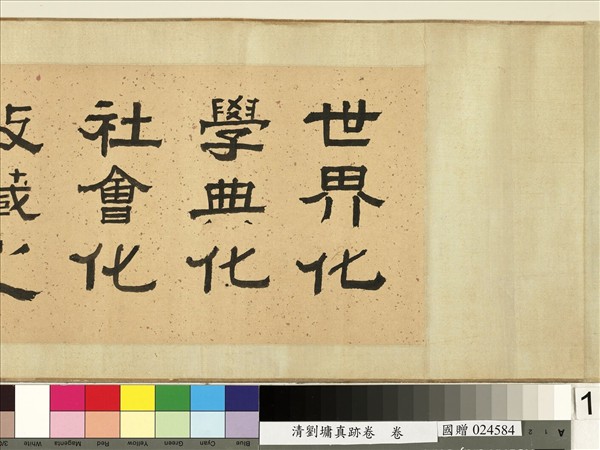 世界化
學典化
社會化
清劉墉真跡卷 卷
國贈 024584
1
Blue Cyan Green Yellow Red Magenta White
A 1 2